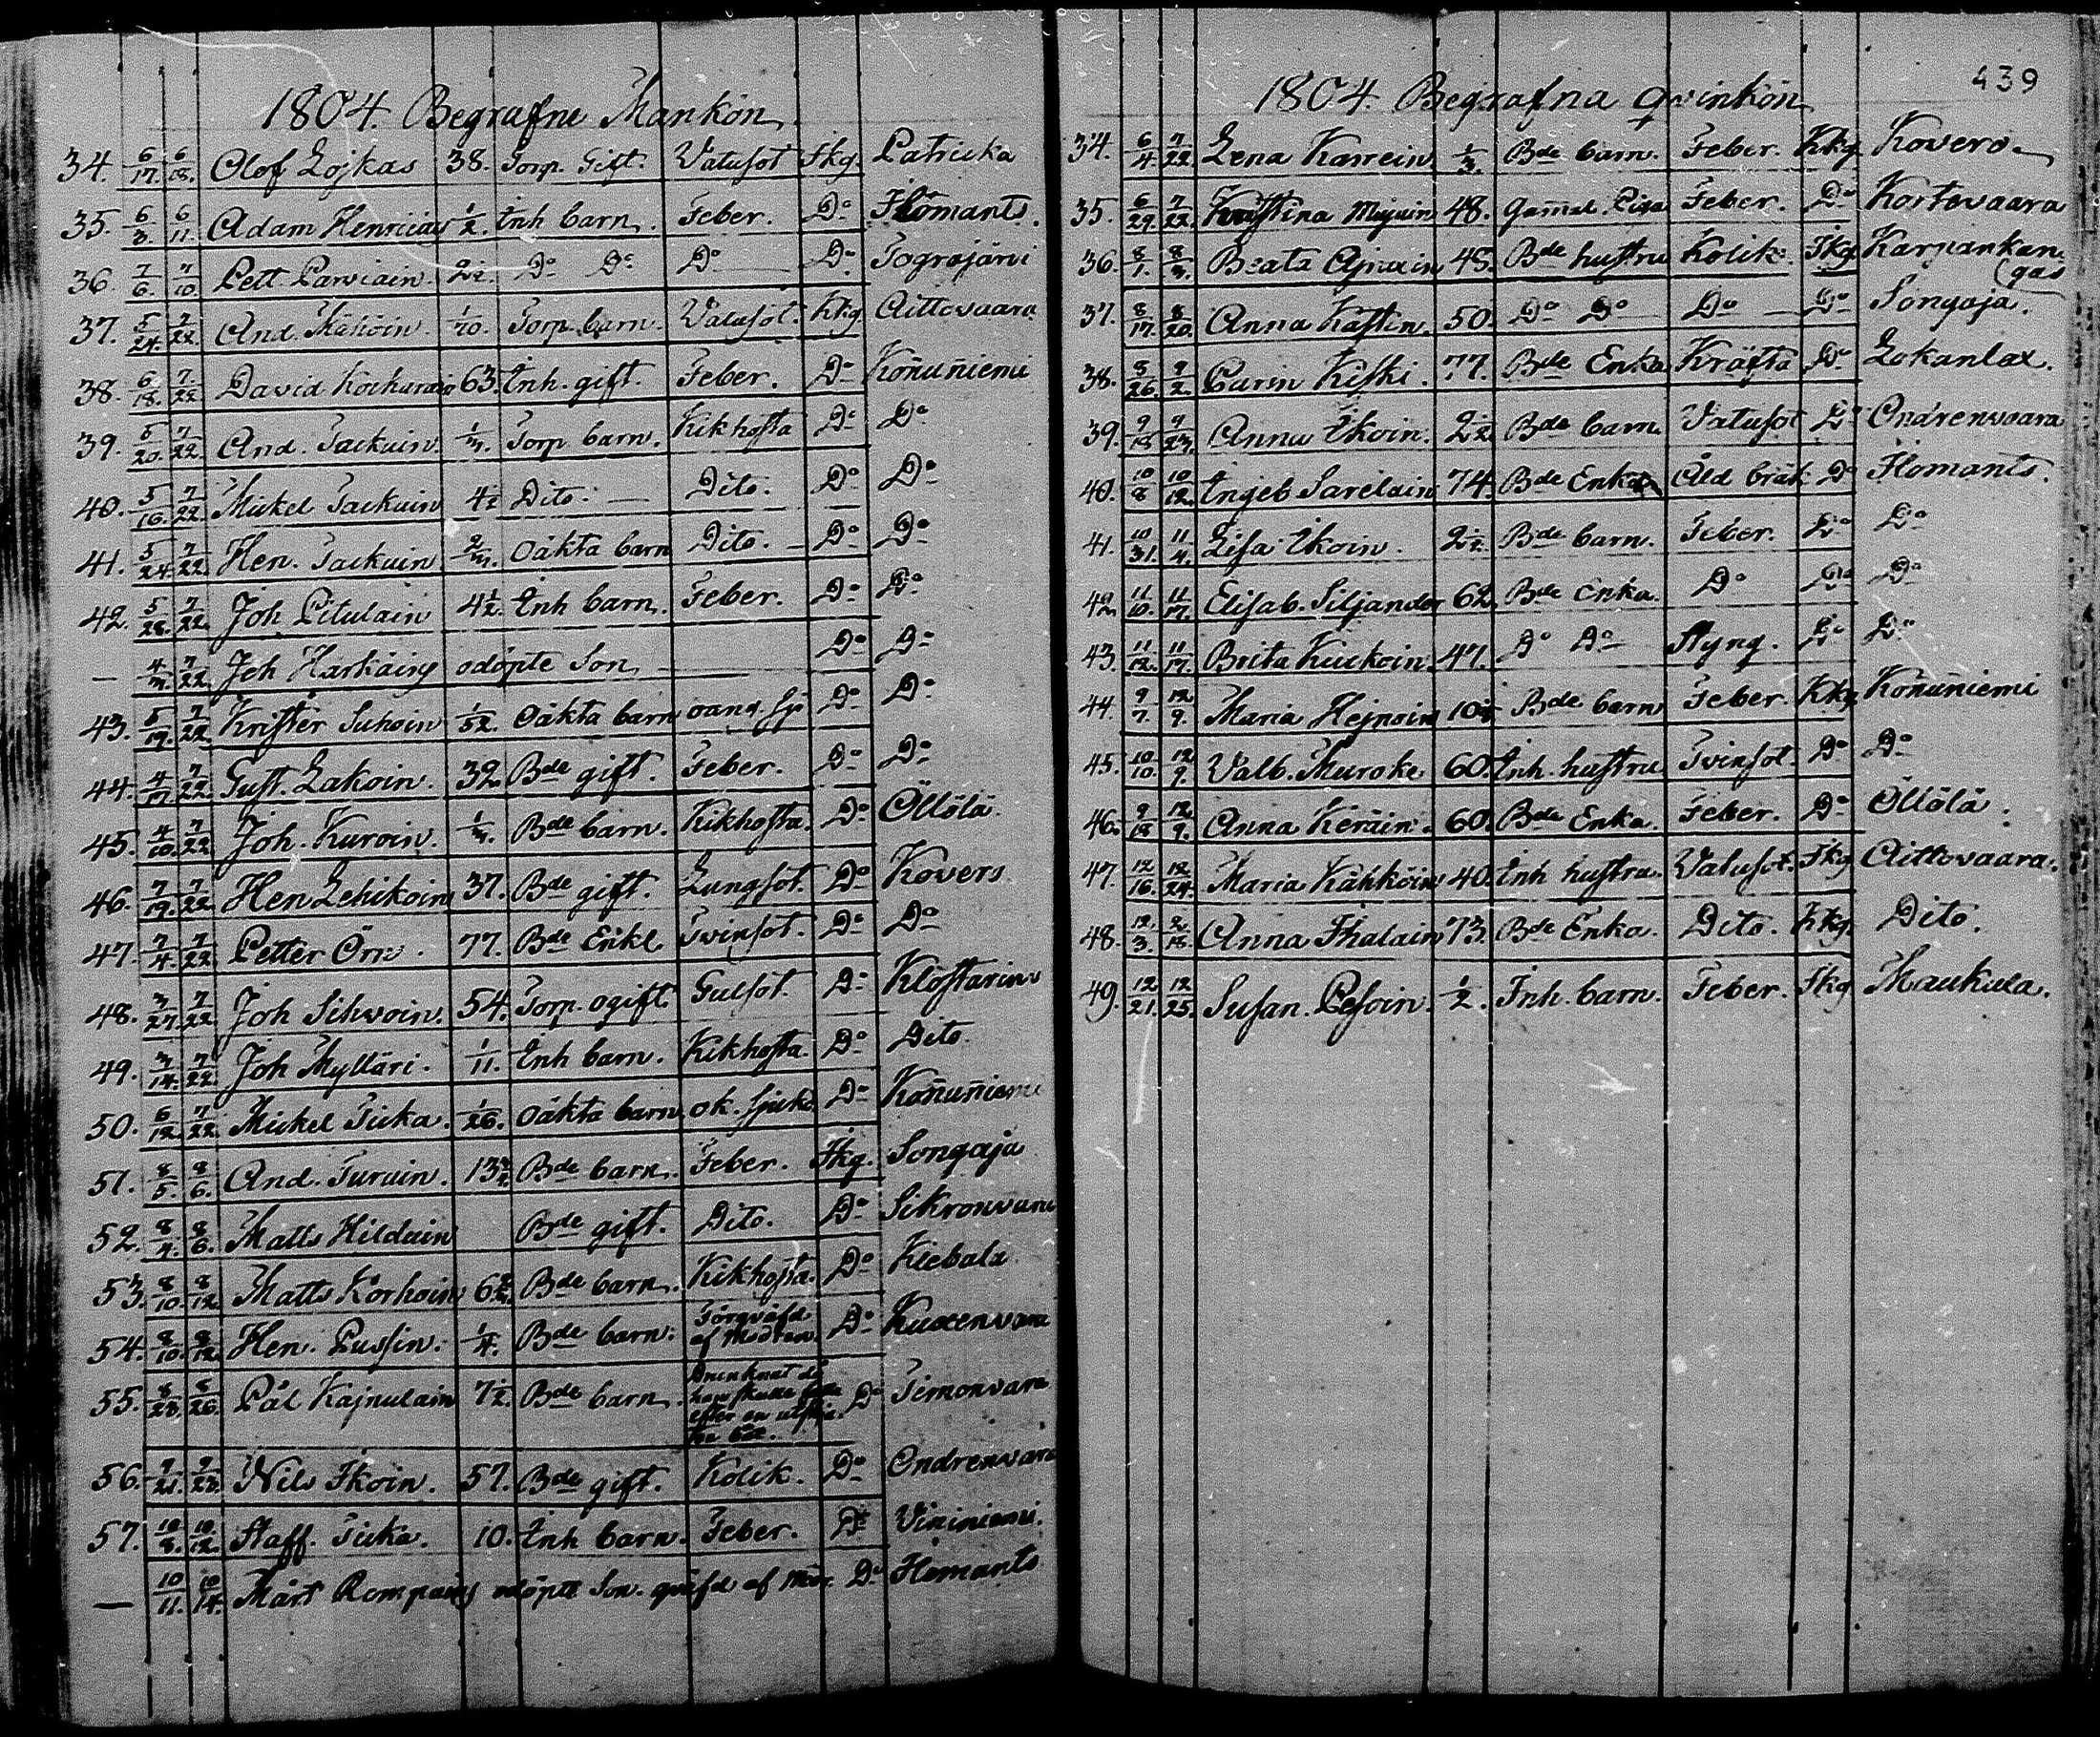 1804. Begrafne Mankön.
34. 6/17. 6/18. Olof Lojkas 38. Torp. Gift. Vatusot Skg. Patricka
35. 6/8. 6/11. Adam Henricus 1/2. Inh barn. Feber. Do Ilomants.
36. 7/6. 7/10. Pett. Parviain. 2 1/2. Do Do Do Do Togrojärvi
37. 5/24. 7/22. And. Mahöin. 1/10. Torp. barn. Vatusot. Kkg Aittovaara
38. 6/18. 7/22. David 63. Inh. gift. Feber. Do Koñuñiemi
39. 5/20. 7/22. And. Tackuin. 1/3. Torp barn. Kikhosta Do Do
40. 5/16. 7/22. Mickel Tackuin 4 1/2 Dito. Dito. Do Do
41. 5/24. 7/22. Hen. Tackuin Oäkta barn Dito. Do Do
42. 5/28. 7/22. Joh Pitulain 4 1/2. Inh barn. Feber. Do Do
— 7/22. Joh Harkäins odöpte Son Do Do
43. 5/19. 7/22 Krister Suhoin 1/52. Oäkta barn oang. sj. Do Do
44. 4/17. 7/22. Gust. Lakoin. 32 Bde gift. Feber. Do Do
45. 4/10. 7/22 Joh. Kuroin. 1/3. Bde barn. Kikhosta. Do Öllölä
46. 7/19. 7/22. Hen Lehikoin 37. Bde gift. Lungsot. Do Kovero
47. 7/4. 7/22. Petter Örn. 77. Bde Enkl Tvinsot. Do Do
48. 3/27. 7/22 Joh Sihvoin. 54. Torp. ogift Gulsot. Do Klostarinv
49. 3/14. 7/22. Joh Mylläri. 1/11. Inh barn. Kikhosta. Do Dito.
50. 6/12. 7/22. Mickel Ticka. 1/26. Oäkta barn ok. sjukd. Do Koñuñiemi
51. 8/5. 8/6. And. Turuin. 13 Bde barn. Feber. Skg. Songaja
52. 8/4. 8/6. Matts Hilduin Bde gift. Dito. Do Sikronvara
53. 8/10. 8/12. Matts Korhoin 6 Bde barn. Kikhosta. Do Kiebala
54. 8/10. 8/12. Hen. Pussin. 1/4. Bde barn. Förqväfd
af Modren. Do Kuoxenvara
55. 8/23. 8/26. Pål Kajnulain 7 1/2. Bde barn. Drunknat då
han skulle
efter en
Do Timonvara
56. 9/21. 9/23. Nils Ikoin. 57. Bde gift. Kolik. Do Ondrenvara
57. 10/8. 10/12. Staff. Ticka. 10. Inh barn. Feber. Do Vininiemi.
— 10/11. 10/14. Mårt Rompains odöpte Son. qväfd af Mor. Do Ilomants
439
1804. Begrafna qvinkön
34. 6/4. 7/22. Lena Karrein 1/3. Bde barn. Feber. Kkg. Kovero.
35. 6/29. 7/22. Kristina Mujuin 48. Gam̃al Piga Feber. Do Kortevaara
36. 8/1. 8/3. Beata Ajnuin 48. Bde hustru Kolik. Skg. Karpankan
(gas
37. 8/17. 8/20. Anna Kastin. 50. Do Do Do Do Songaja.
38. 8/26. 9/2. Carin Kiski. 77. Bde Enka Kräfta Do Lokanlax.
39. 9/18. 9/23. Anna Ikoin. 2 1/2 Bde barn. Vatusot Do Ondrenvaara
40. 10/8. 10/12. Ingeb Sarelain 74. Bde Enka Åld. bräk Do Ilomants.
41. 10/31. 11/4. Lisa Ikoin. 2 1/2. Bde barn. Feber. Do Do
42. 11/10. 11/17. Elisab. Siljander 62 Bde Enka. Do Do Do
43. 11/12. 11/17. Brita Kuckoin. 47. Do Do Styng. Do Do
44. 9/7. 12/9. Maria Hejnoin 10 Bde barn Feber. Kkg. Koñuñiemi
45. 10/10. 12/9. Valb. Muroke 60. Inh. hustru Tvinsot. Do Do
46. 9/18. 12/9. Anna Keräin. 60. Bde Enka. Feber. Do Öllölä.
47. 12/16. 12/24. Maria Kähköin 40. Inh hustru. Vatusot. Skg Aittovaara.
48. 12/3. Anna Ihalain 73. Bde Enka. Dito. Kkg. Dito.
49. 12/21. 12/25. Susan. Pesoin. 1/2. Inh. barn. Feber. Skg Maukula.